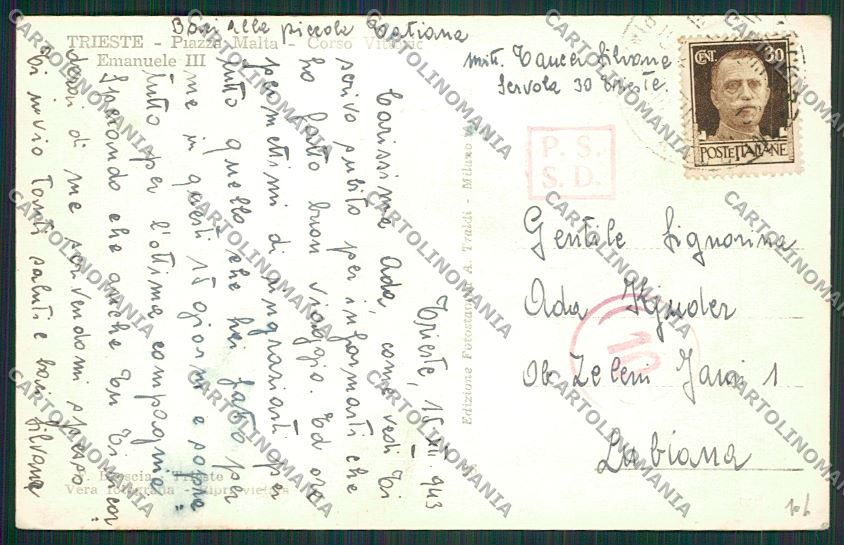 Baci alla piccola Tatiana
TRIESTE - Piazza Malta - Corso Vittorio
Emanuele III
mitt. Silvana
Servola 30 Trieste.
CENT. 30
POSTE ITALIANE
P. S.
S. D.
Trieste, 15 943
Carissima Ada, come vedi ti
scrivo subito per informarti che
ho fatto buon viaggio. Ed ora
permettimi di ringraziarti per
tutto quello che hai fatto per
me in questi 15 giorni e
tutto per l'ottima compagnia.
Sperando che anche tu ti
di me scrivendomi spesso
ti invio tanti saluti e baci Silvana
Gentile Signorina
Ada Kjuder
Ob Zeleni Jami 1
Lubiana
10
Edizione Fotostampa A. Traldi - Milano
F. Brescia - Trieste
Vera fotografia - Riprod. vietata
CARTOLINOMANIA